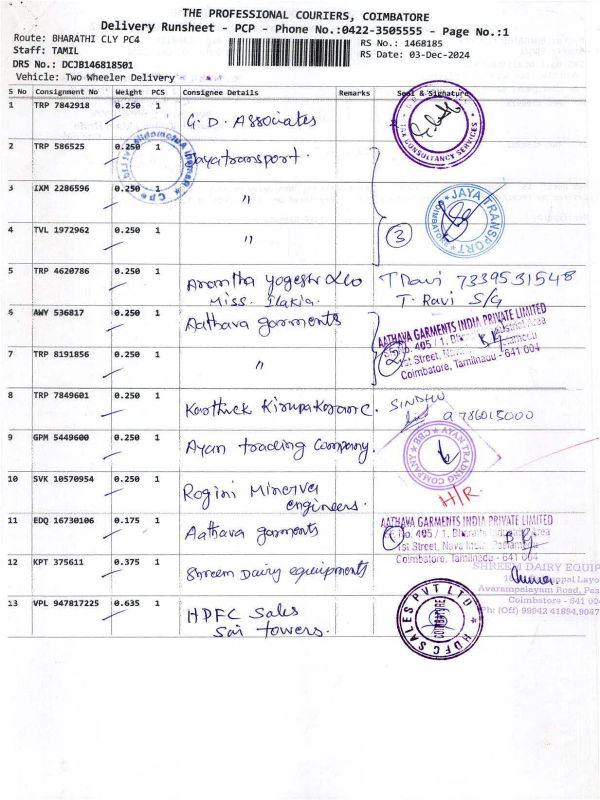 THE PROFESSIONAL COURIERS, COIMBATORE
Delivery Runsheet - PCP - Phone No.:0422-3505555 - Page No.:1
Route: BHARATHI CLY PC4
RS No.: 1468185
Staff: TAMIL
RS Date: 03-Dec-2024
DRS No.: DCJB146818501
Vehicle: Two Wheeler Delivery
S No Consignment No Weight PCS Consignee Details Remarks Seal & Signature
1 TRP 7842918 0.250 1 G.D. Associates
CONSULTANCY SERVICES
2 TRP 586525 0.250 1 Jayatransport.
3 IXM 2286596 0.250 1 "
JAYA TRANSPORT
COIMBATORE
4 TVL 1972962 0.250 1 "
3
5 TRP 4620786 0.250 1 Anantha yogeshr Leo
Miss. Ilakia.
T Ravi 7339531548
T. Ravi S/G
6 AWY 536817 0.250 1 Aathava garments
AATHAVA GARMENTS INDIA PRIVATE LIMITED
No. 405 / 1, Industrial Area
1st Street,
Coimbatore, Tamilnadu - 641 004
2
7 TRP 8191856 0.250 1 "
8 TRP 7849601 0.250 1 Karthick Kirupakaran C.
SINDHU
9786015000
9 GPM 5449600 0.250 1 Ayan trading company.
TRADING COMPANY
CBE
10 SVK 10570954 0.250 1 Rogini Minerva
engineers.
H/R.
11 EDQ 16730106 0.175 1 Aathava garments
AATHAVA GARMENTS INDIA PRIVATE LIMITED
No. 405 / 1, Area
1st Street,
Coimbatore, Tamilnadu - 641 004
1
12 KPT 375611 0.375 1 Shreem Dairy equipments
SHREEM DAIRY EQUIP
Avarampalayam Road,
Coimbatore - 641 00
Ph: (Off) 99942 41894,9047
13 VPL 947817225 0.635 1 HDFC Sales
Sai towers.
HDFC SALES PVT LTD
COIMBATORE